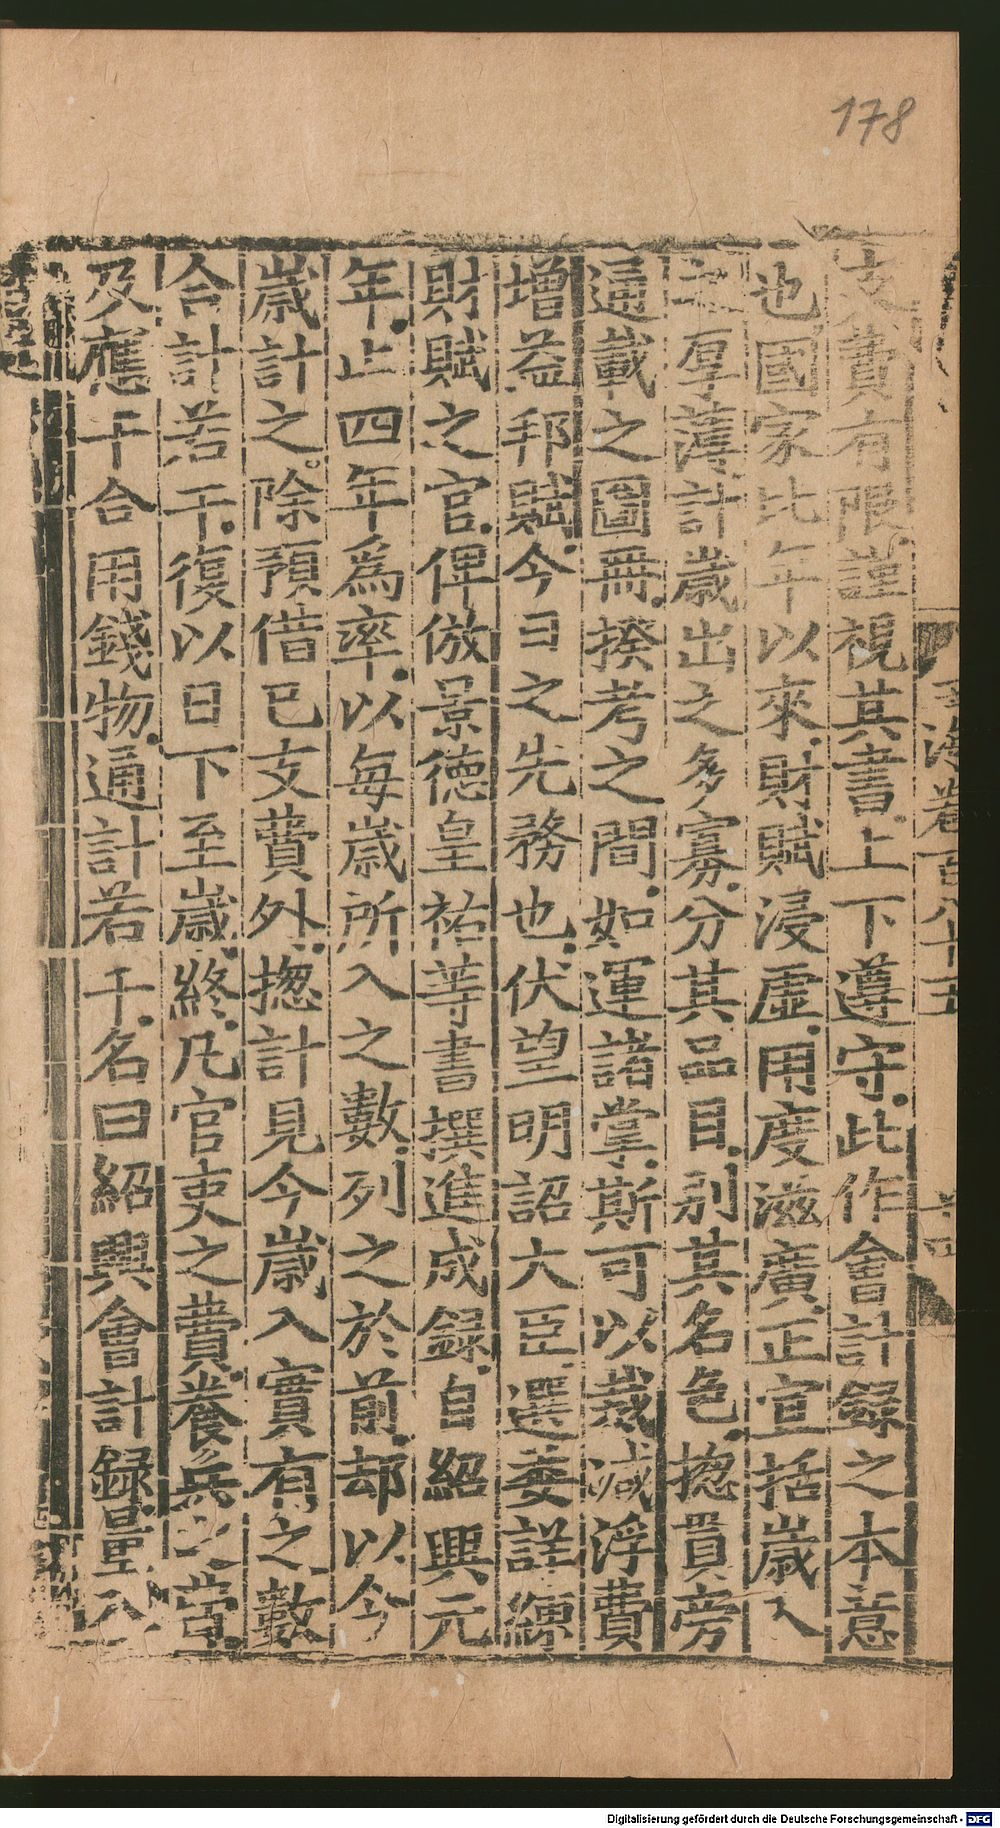 178
玉海卷百八十五
支費有限謹視其書上下遵守此作會計録之本意
也國家比年以來財賦浸虛用度滋廣正宜括歲入
之厚薄計歲出之多寡分其品目别其名色揔貫旁
通載之圖冊揆考之間如運諸掌斯可以裁減浮費
增益邦賦今日之先務也伏望明詔大臣選委詳練
財賦之官俾倣景德皇祐等書撰進成録自紹興元
年止四年爲率以每歲所入之數列之於前却以今
歲計之除預借已支費外揔計見今歲入實有之數
合計若干復以日下至歲終凡官吏之費養兵之
及應干合用錢物通計若干名曰紹興會計録量入
Digitalisierung gefördert durch die Deutsche Forschungsgemeinschaft - DFG